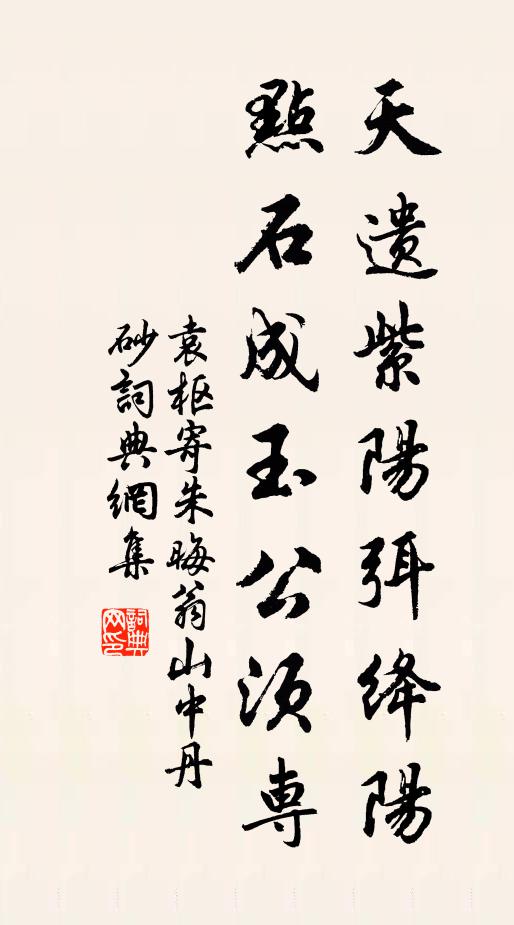 天遺紫陽弭絳陽
點石成玉公須専
袁枢寄朱晦翁山中丹
砂詞典網集
詞典网印